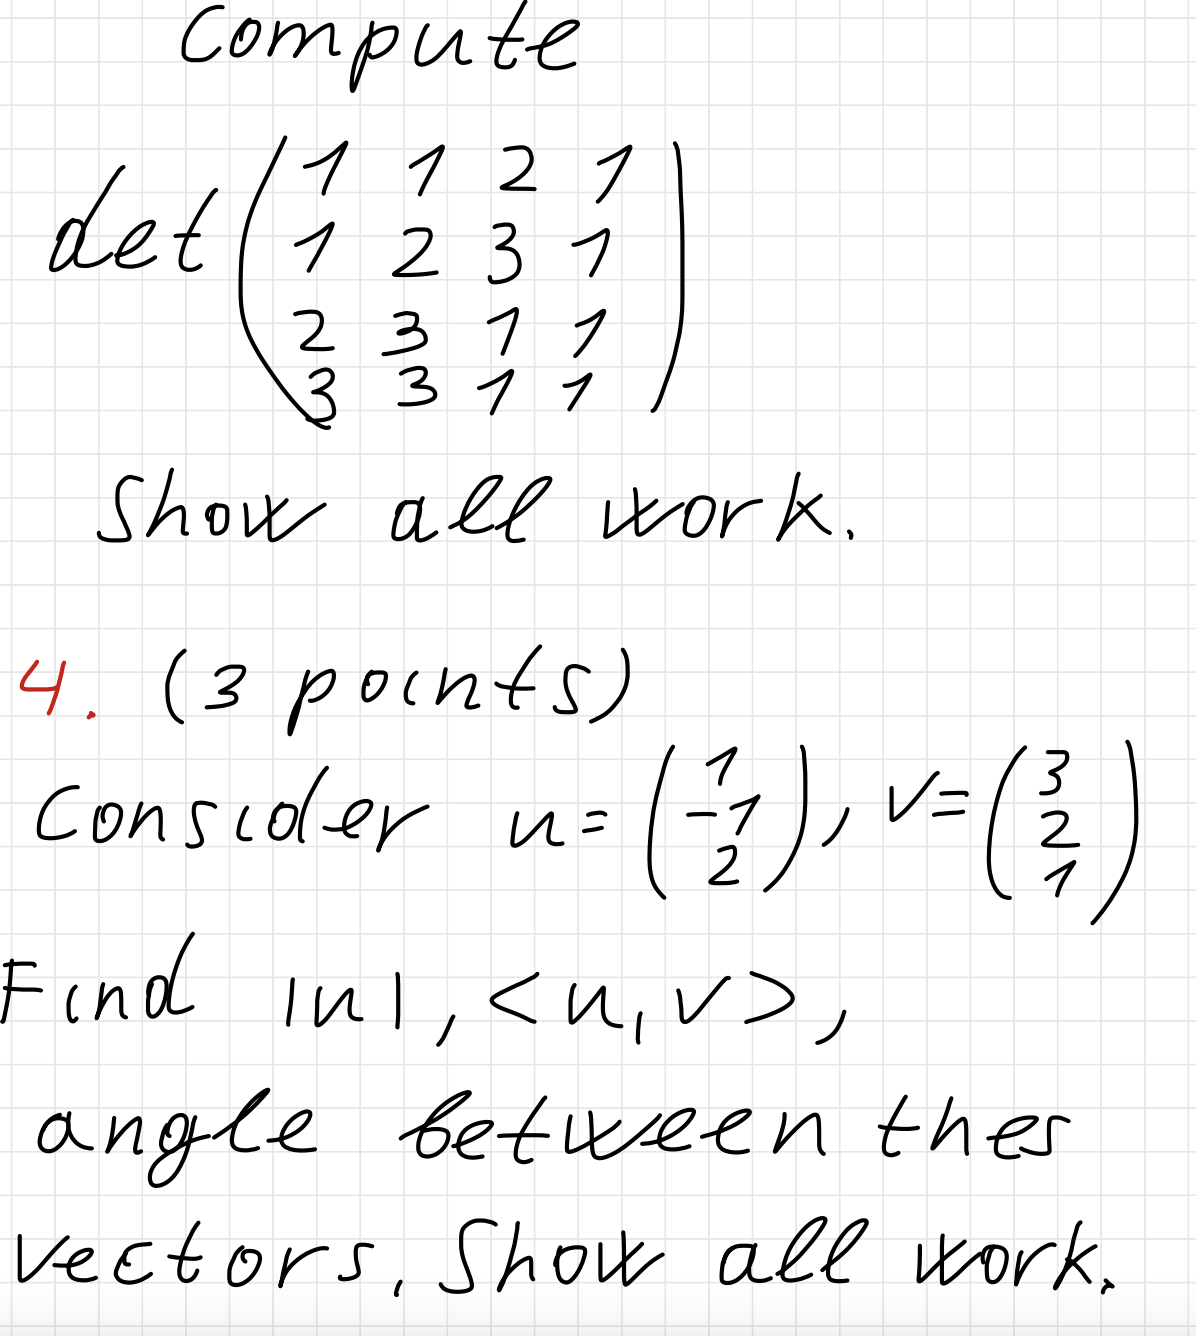 Compute
det ( 1 1 2 1
1 2 3 1
2 3 1 1
3 3 1 1 )
Show all work.
4. (3 points)
Consider u = ( 1 -1 2 ), v = ( 3 2 1 )
Find |u|, <u, v>,
angle between thes
vectors. Show all work.